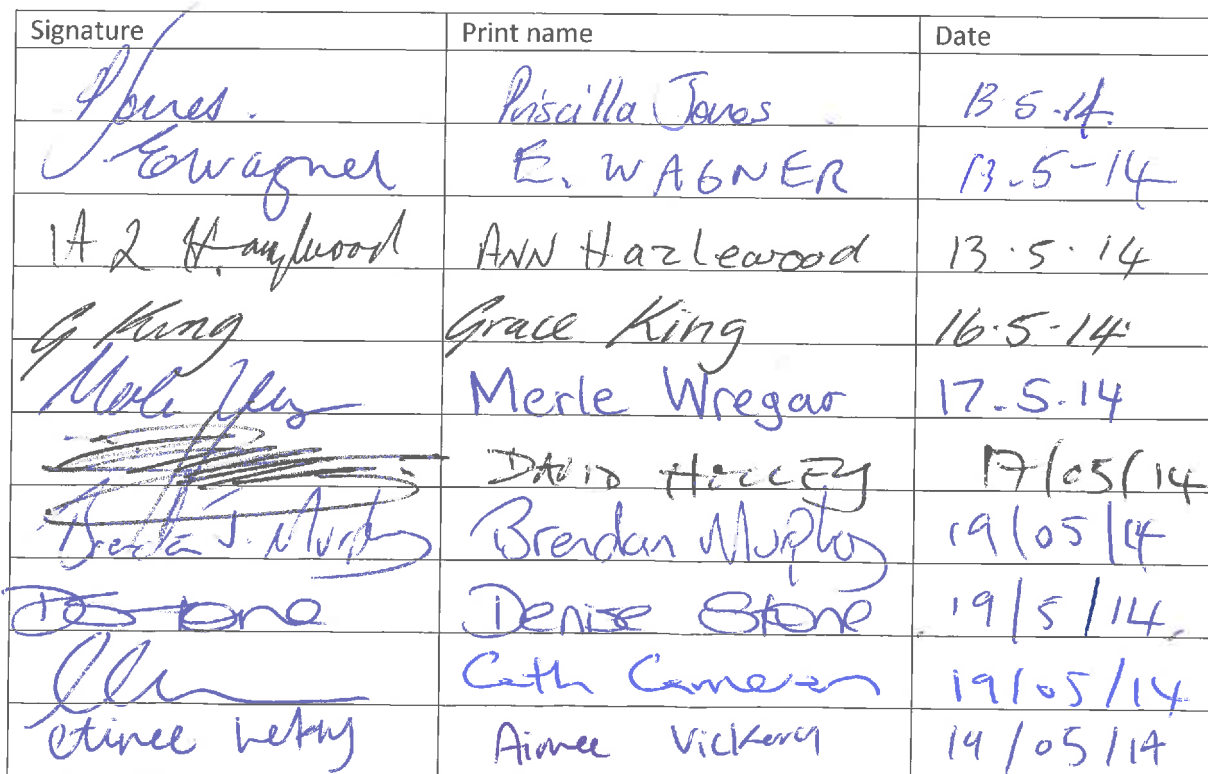 Signature Print name Date
PJones. Priscilla Jones 13.5.14
EWagner E. WAGNER 13.5-14
Hazlewood ANN Hazlewood 13.5.14
G King Grace King 16.5.14
Merle Merle Wregar 17.5.14
DAVID 17/05/14
Brendan J. Murphy Brendan Murphy 19/05/14
DStone Denise Stone 19/5/14
Cath Cameron 19/05/14
Aimee Vickery 19/05/14